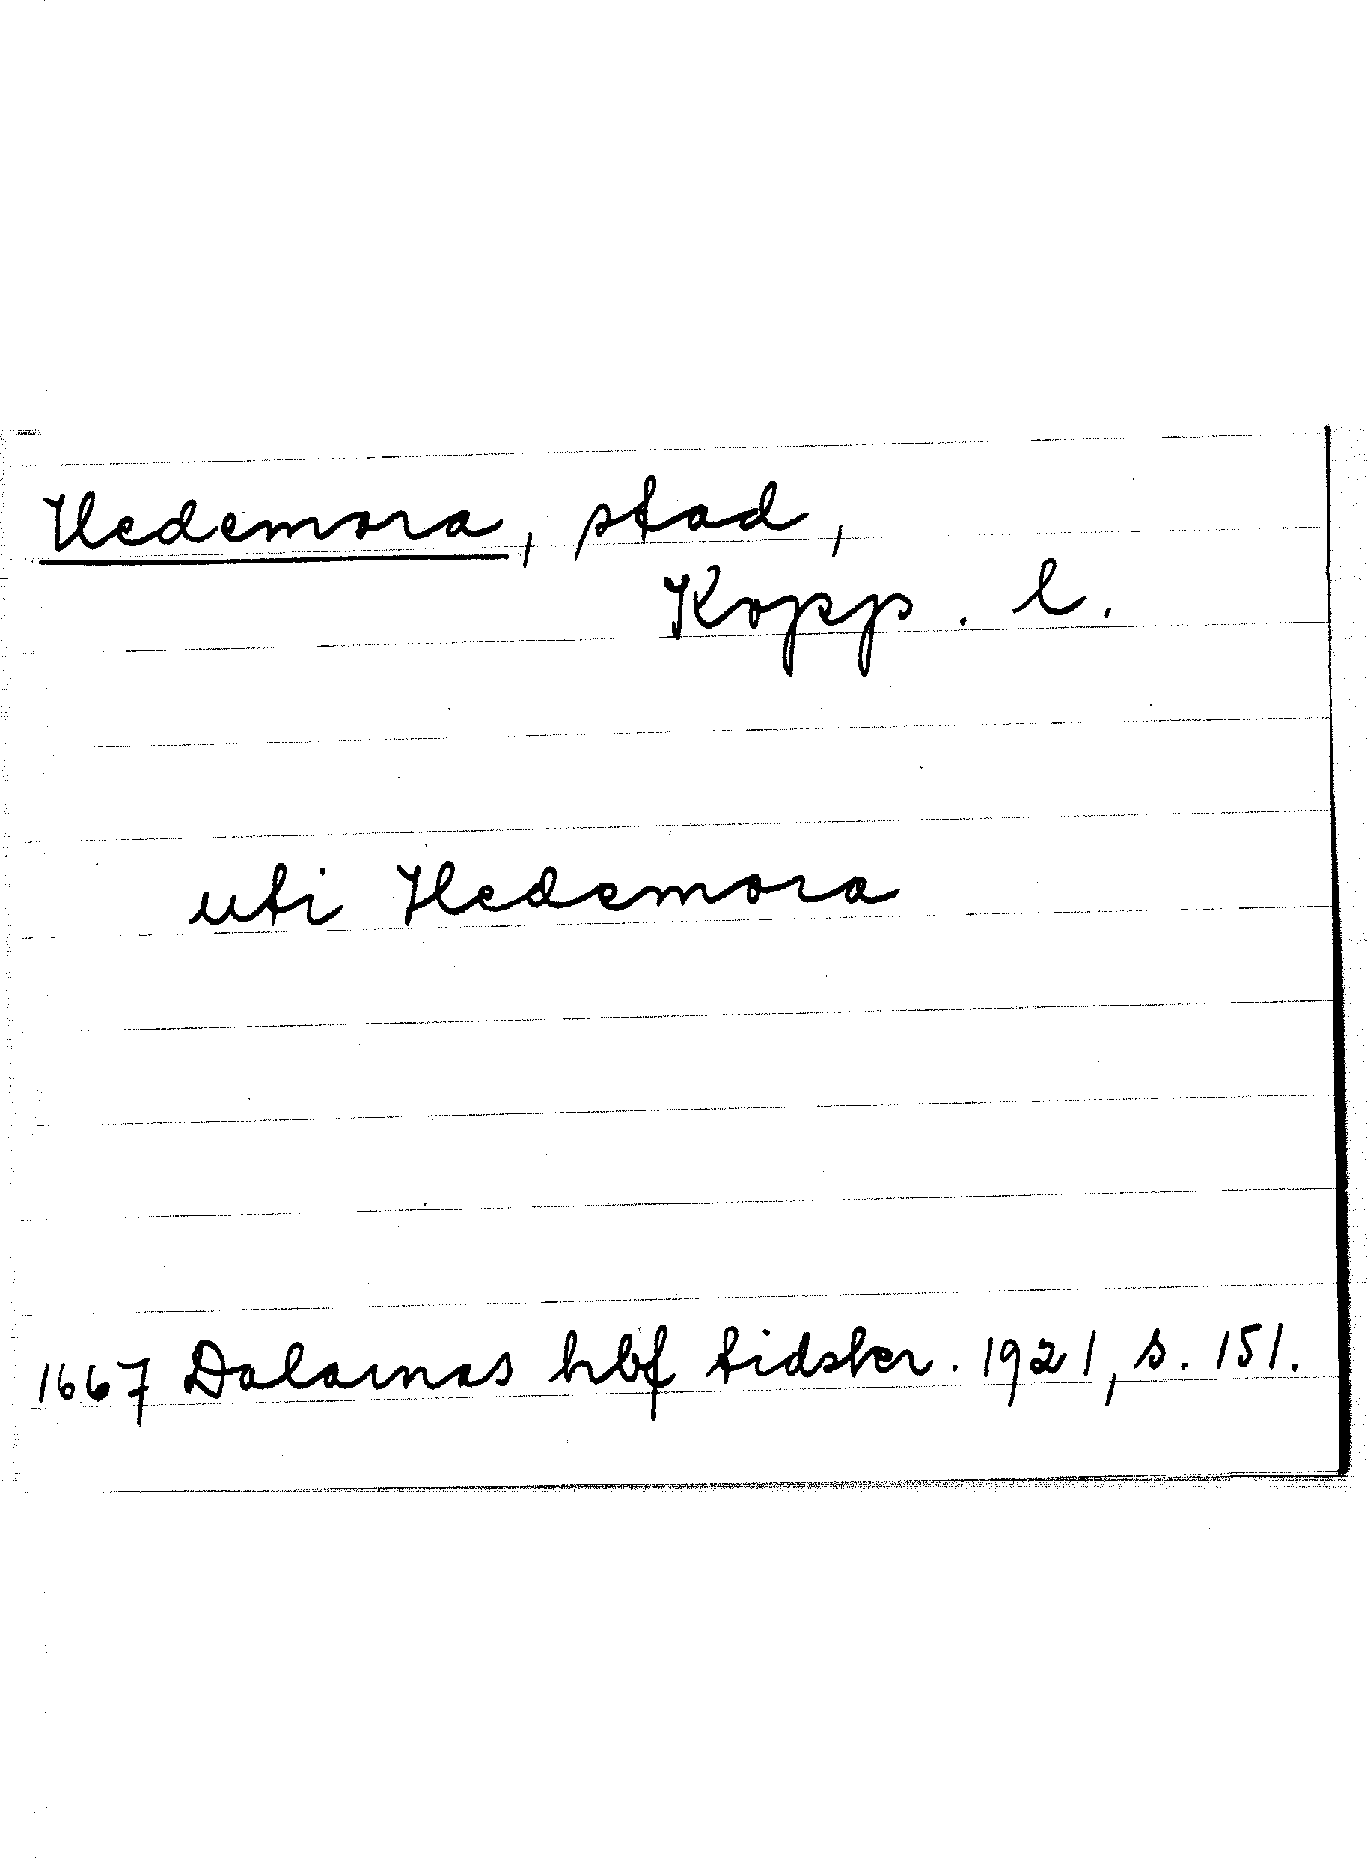 Hedemora, stad,
Kopp. l.
uti Hedemora
1667 Dalarnas hbf tidskr. 1921, s. 151.